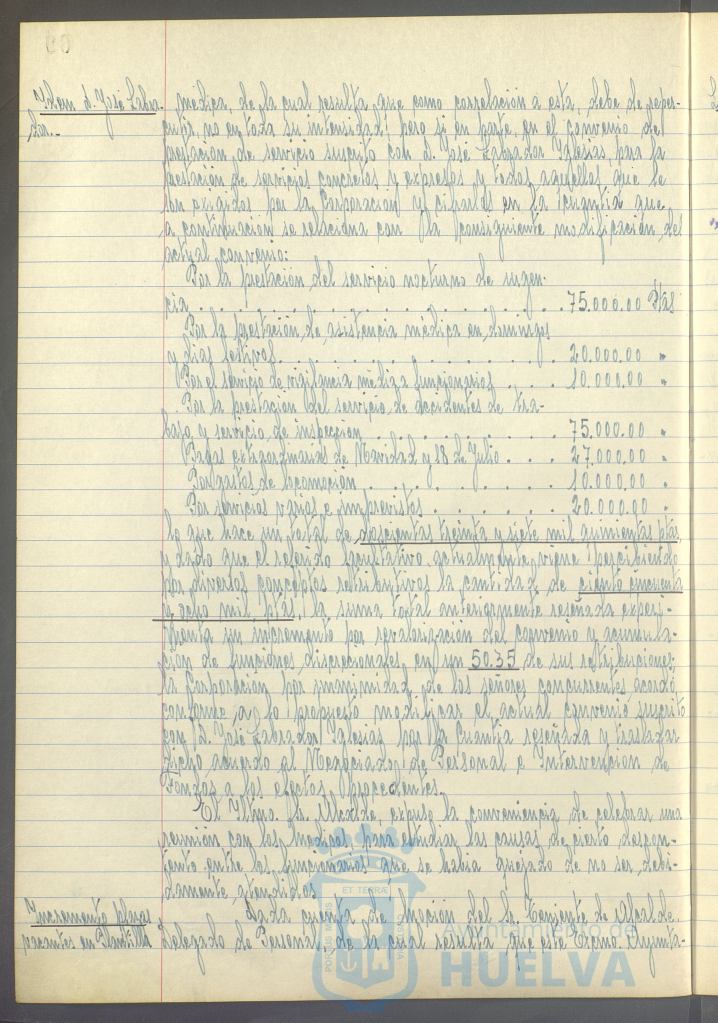 Idem d. José Labra-
dor.-
médica, de la cual resulta que como correlación a esta, debe de reper-
cutir, no en toda su intensidad, pero si en parte, en el convenio de
prestación de servicio suscrito con d. José Labrador Iglesias, para la
prestación de servicios concretos y expresos y todos aquellos que le
son exigidos por la Corporación y cifrarlos en la cuantia que
a continuación se relaciona con la consiguiente modificación del
actual convenio:
Por la prestación del servicio nocturno de urgen-
cia . . . . . . . . . . . . . . . . . 75.000.00 Ptas
Por la prestación de asistencia médica en domingos
y dias festivos . . . . . . . . . . . . 20.000.00 "
Por el servicio de vigilancia médica funcionarios . . . . 10.000.00 "
Por la prestación del servicio de accidentes de tra-
bajo y servicio de inspección . . . . . . . . . 75.000.00 "
Pagas extraordinarias de Navidad y 18 de Julio . . . . 27.000.00 "
Por gastos de locomoción . . . . . . . . . 10.000.00 "
Por servicios varios e imprevistos . . . . . . 20.000.00 "
lo que hace un total de doscientas treinta y siete mil quinientas ptas
y dado que el referido facultativo, actualmente viene percibiendo
por diversos conceptos retributivos la cantidad de ciento cincuenta
y ocho mil ptas, la suma total anteriormente reseñada experi-
menta un incremento por revalorización del convenio y acumula-
ción de funciones discrecionales en un 50.35 de sus retribuciones;
la Corporación por unanimidad de los señores concurrentes acordó
conforme a lo propuesto modificar el actual convenio suscrito
con D. José Labrador Iglesias por la cuantia reseñada y trasladar
dicho acuerdo al Negociado de Personal e Intervención de
Fondos a los efectos procedentes.
El Iltmo. Sr. Alcalde, expuso la conveniencia de celebrar una
reunión con los médicos, para estudiar las causas de cierto descon-
tento entre los funcionarios que se habia quejado de no ser debi-
damente atendidos.
Incremento plazas
vacantes en Plantilla
Dada cuenta de Moción del Sr. Teniente de Alcalde
Delegado de Personal de la cual resulta que este Excmo. Ayunta-
PORTUS MARIS
ET TERRAE
CUSTODIA
Ayuntamiento de
HUELVA